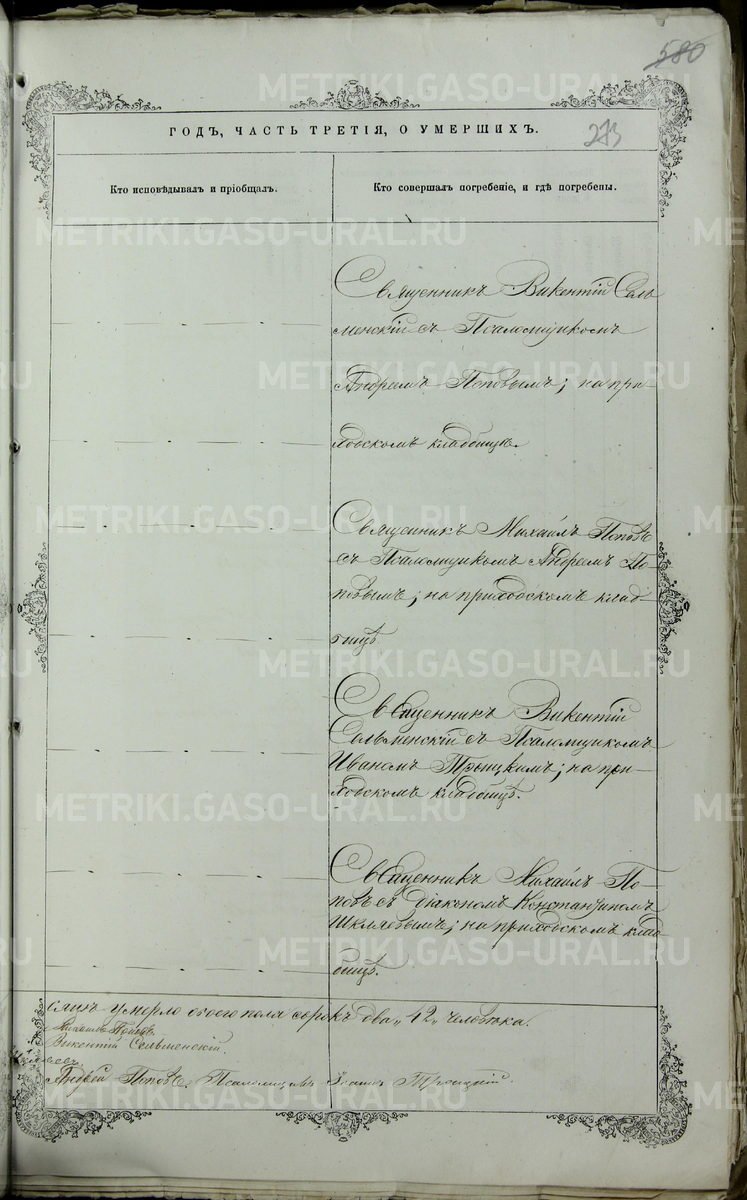 580
ГОДЪ, ЧАСТЬ ТРЕТІЯ, О УМЕРШИХЪ.
273
Кто исповѣдывалъ и пріобщалъ.
Кто совершалъ погребеніе, и гдѣ погребены.
Священникъ Викентій Сель-
менскій съ Псаломщикомъ
Андреемъ Поповымъ; на при-
ходскомъ кладбищѣ.
Священникъ Михаилъ Поповъ
съ Псаломщикомъ Андреемъ По-
повымъ; на приходскомъ клад-
бищѣ
Священникъ Викентій
Сельменскій съ Псаломщикомъ
Иваномъ Троицкимъ; на при-
ходскомъ кладбищѣ.
Священникъ Михаилъ По-
повъ съ Діакономъ Константиномъ
Шкляевымъ; на приходскомъ клад-
бищѣ.
умерло обоего пола сорокъ два „42„ человѣка.
Михаилъ Поповъ.
Викентій Сельменскій.
Андрей Поповъ. Псаломщикъ Иванъ Троицкій.
METRIKI.GASO-URAL.RU